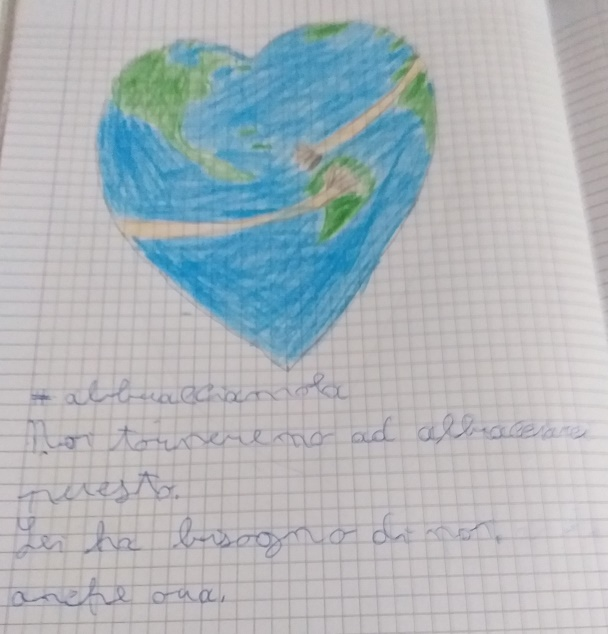 # abbracciamola
Noi torneremo ad abbracciare
questo.
Lei ha bisogno di noi,
anche ora.